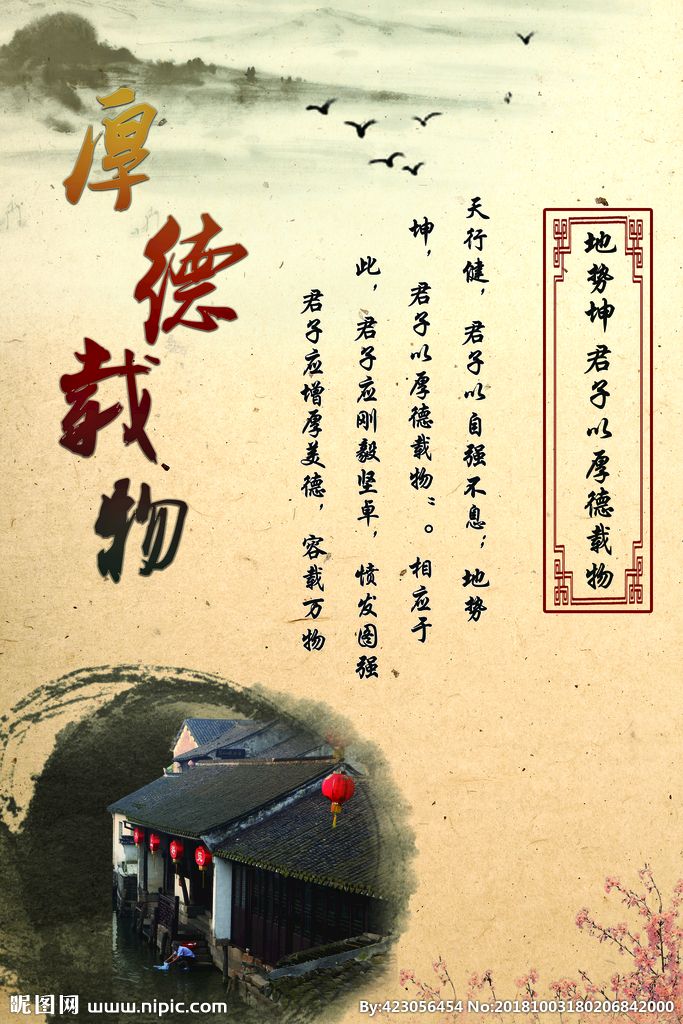 地势坤 君子以厚德载物
天行健，君子以自强不息；地势
坤，君子以厚德载物"。相应于
此，君子应刚毅坚卓，愤发图强
君子应增厚美德，容载万物
厚德载物
昵图网 www.nipic.com
By:423056454 No:20181003180206842000